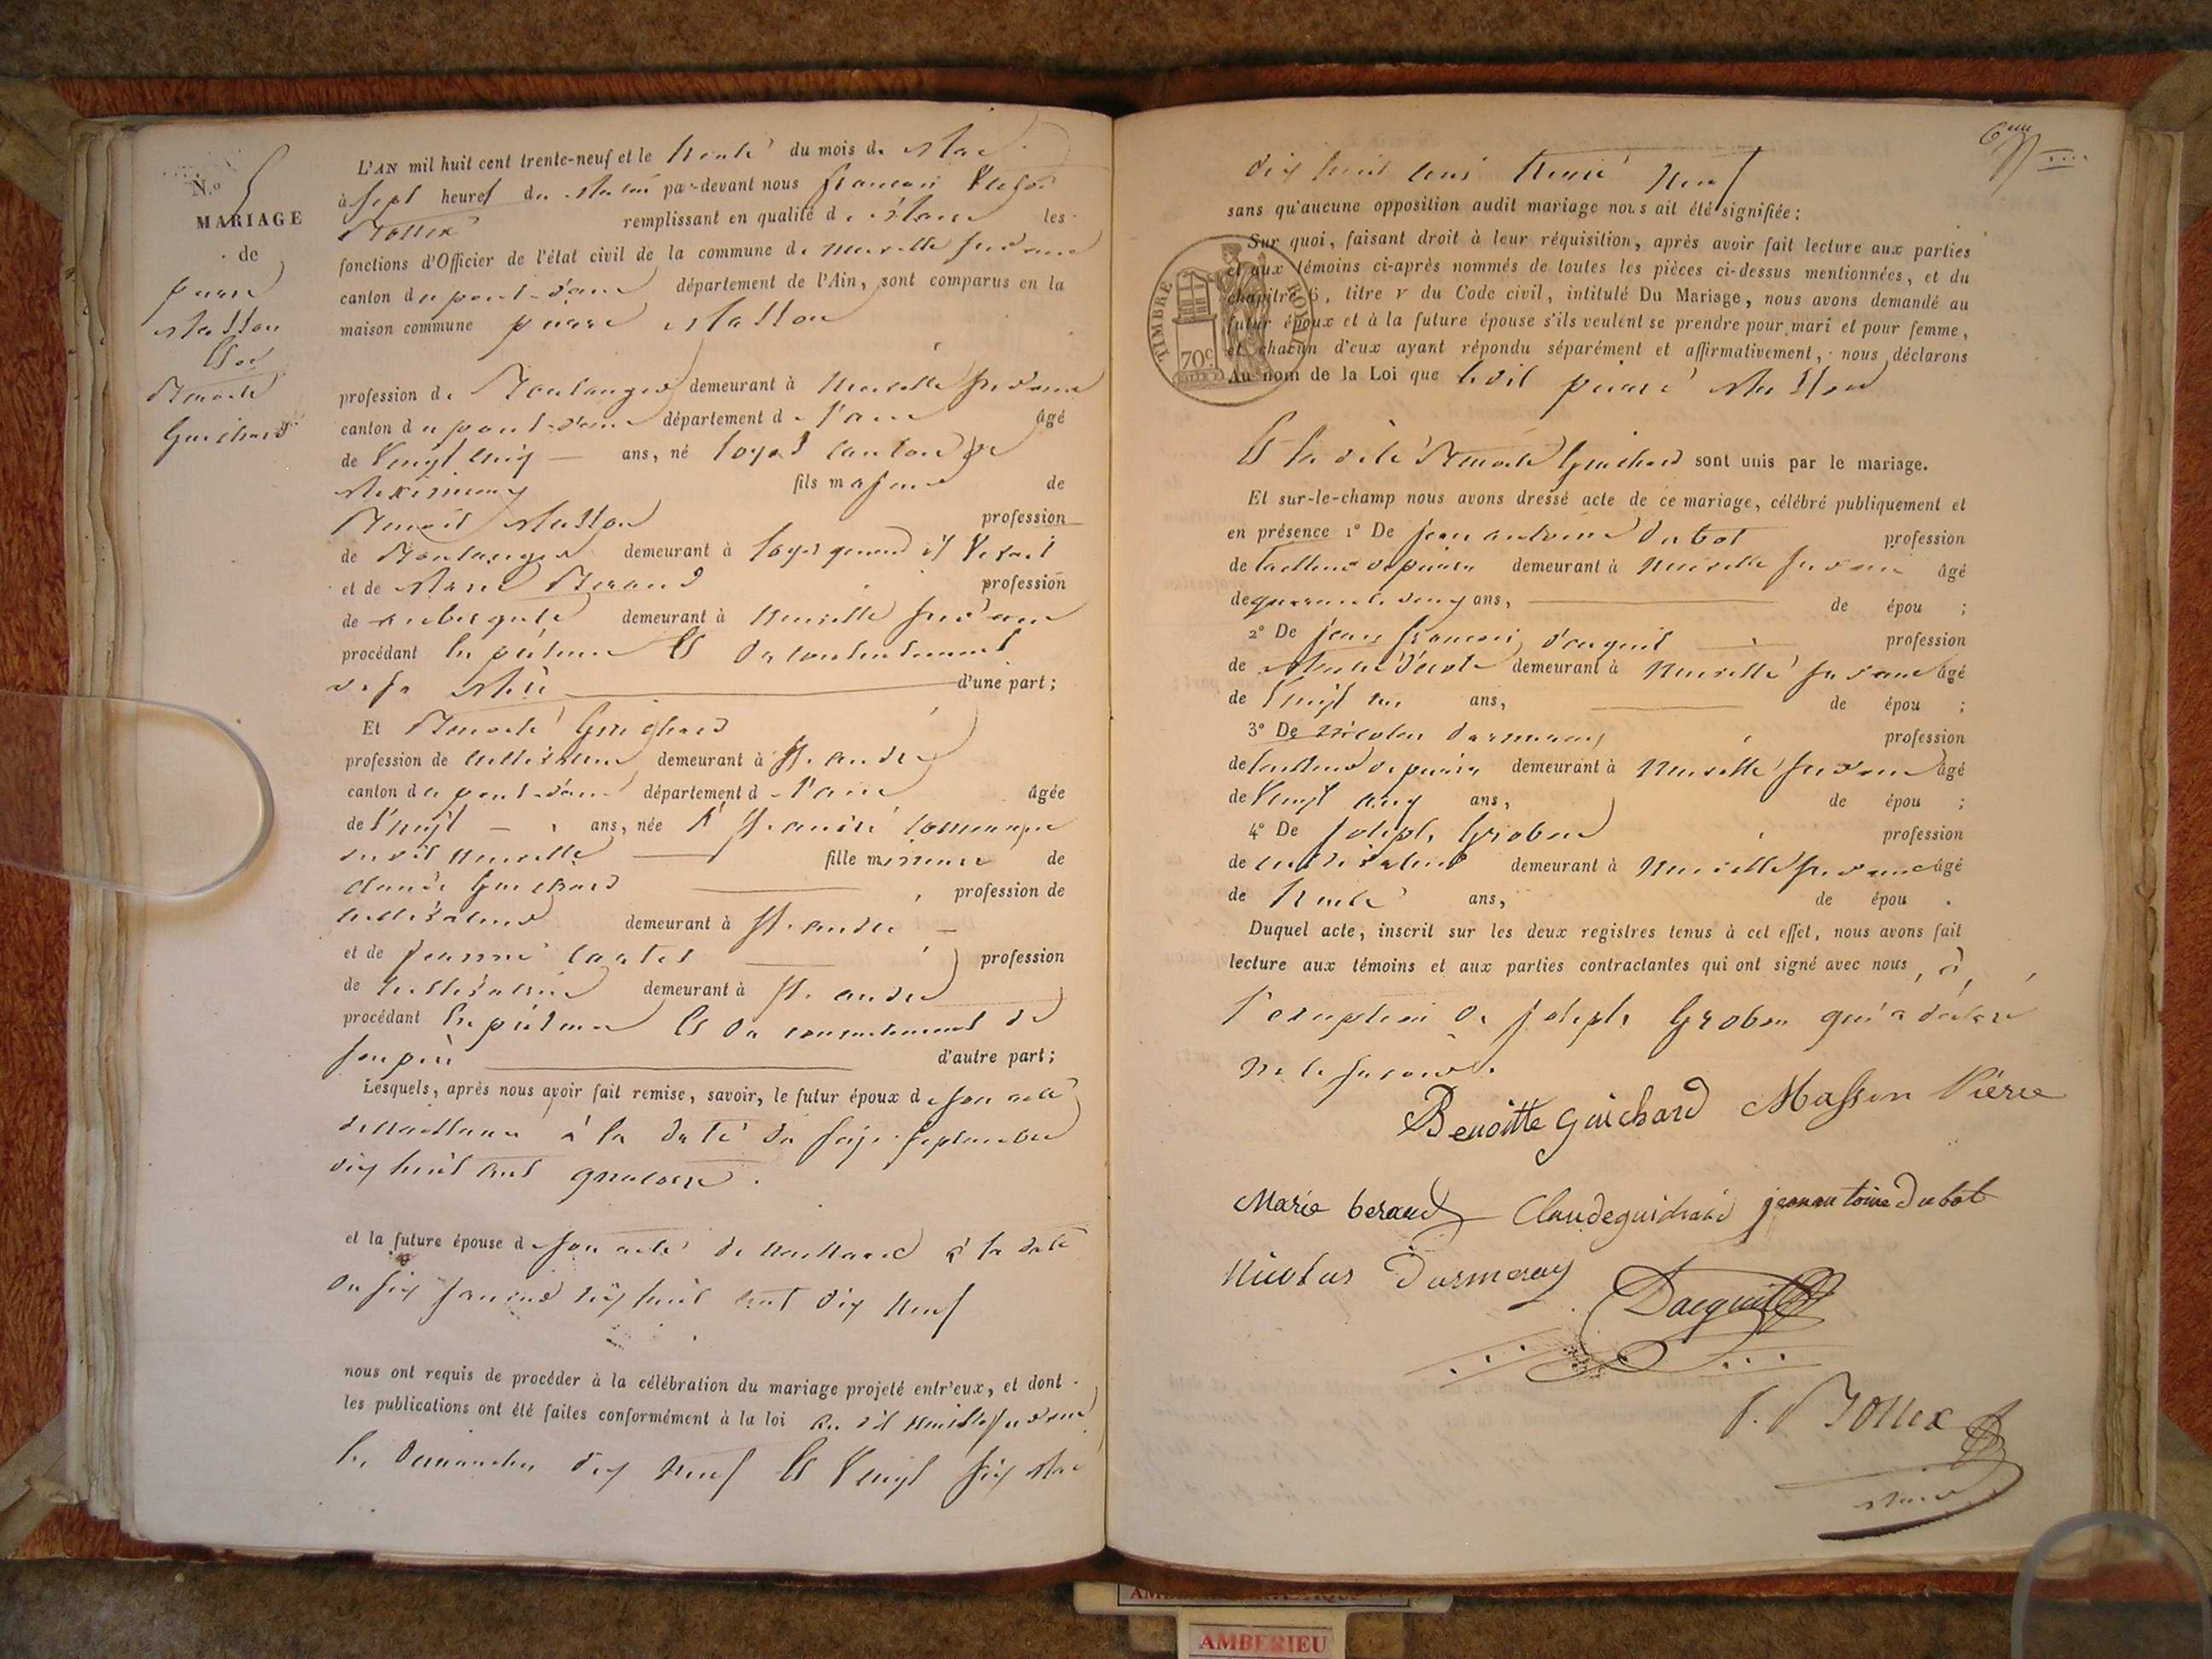 N.o 5
MARIAGE
de
pierre
Masson
Et
Benoite
Guichard
L'AN mil huit cent trente-neuf et le trente du mois de Mai
à sept heures du Matin par-devant nous francois
Bollex remplissant en qualité de Maire les
fonctions d'Officier de l'état civil de la commune de neuville sur d'ain
canton du pont-d'ain département de l'Ain, sont comparus en la
maison commune pierre Masson
profession de Boulanger demeurant à Neuville sur d'ain
canton du pont-d'ain département de l'ain âgé
de Vingt cinq ans, né Loyes canton de
Meximieux fils majeur de
Benoit Masson profession
de Boulanger demeurant à Loyes quand il Vivait
et de Marie Beraud profession
de aubergiste demeurant à Neuville sur d'ain
procédant Et du consentement
de sa Mère d'une part;
Et Benoite Guichard
profession de cultivateur demeurant à St. andré
canton du pont-d'ain département de l'ain âgée
de Vingt ans, née à St. andré commune
dudit Neuville fille mineure de
claude Guichard profession de
cultivateur demeurant à St. andré
et de jeanne profession
de cultivatrice demeurant à St. andré
procédant Et du consentement de
son père d'autre part;
Lesquels, après nous avoir fait remise, savoir, le futur époux de son acte
de naissance à la date du seize septembre
dix huit cent quatorze.
et la future épouse de son acte de naissance à la date
du six janvier dix huit cent dix neuf
nous ont requis de procéder à la célébration du mariage projeté entr'eux, et dont
les publications ont été faites conformément à la loi au dit Neuville sur d'ain
les dimanches dix neuf Et Vingt six Mai
6me
dix huit cent trente neuf
sans qu'aucune opposition audit mariage nous ait été signifiée:
Sur quoi, faisant droit à leur réquisition, après avoir fait lecture aux parties
et aux témoins ci-après nommés de toutes les pièces ci-dessus mentionnées, et du
chapitre 6, titre v du Code civil, intitulé Du Mariage, nous avons demandé au
futur époux et à la future épouse s'ils veulent se prendre pour mari et pour femme,
et chacun d'eux ayant répondu séparément et affirmativement, nous déclarons
Au nom de la Loi que ledit pierre Masson
TIMBRE ROYAL
70c
Et la dite Benoite Guichard sont unis par le mariage.
Et sur-le-champ nous avons dressé acte de ce mariage, célébré publiquement et
en présence 1o De jean antoine Dubot profession
de tailleur de pierre demeurant à Neuville sur d'ain âgé
de quarante deux ans, de épou ;
2o De jean francois d'aquit profession
de demeurant à Neuville sur d'ain âgé
de Vingt ans, de épou ;
3o De Nicolas Darmeray profession
de tailleur de pierre demeurant à Neuville sur d'ain âgé
de Vingt cinq ans, de épou ;
4o De joseph Grobon profession
de cultivateur demeurant à Neuville sur d'ain âgé
de trente ans, de épou .
Duquel acte, inscrit sur les deux registres tenus à cet effet, nous avons fait
lecture aux témoins et aux parties contractantes qui ont signé avec nous, à
l'exception de joseph Grobon qui a déclaré
ne le savoir.
Benoitte guichard Masson Piérre
Marie beraud Claude guichard jean antoine Dubot
Nicolas Darmeray
Dacquit
f. Bollex
Maire
AMBERIEU